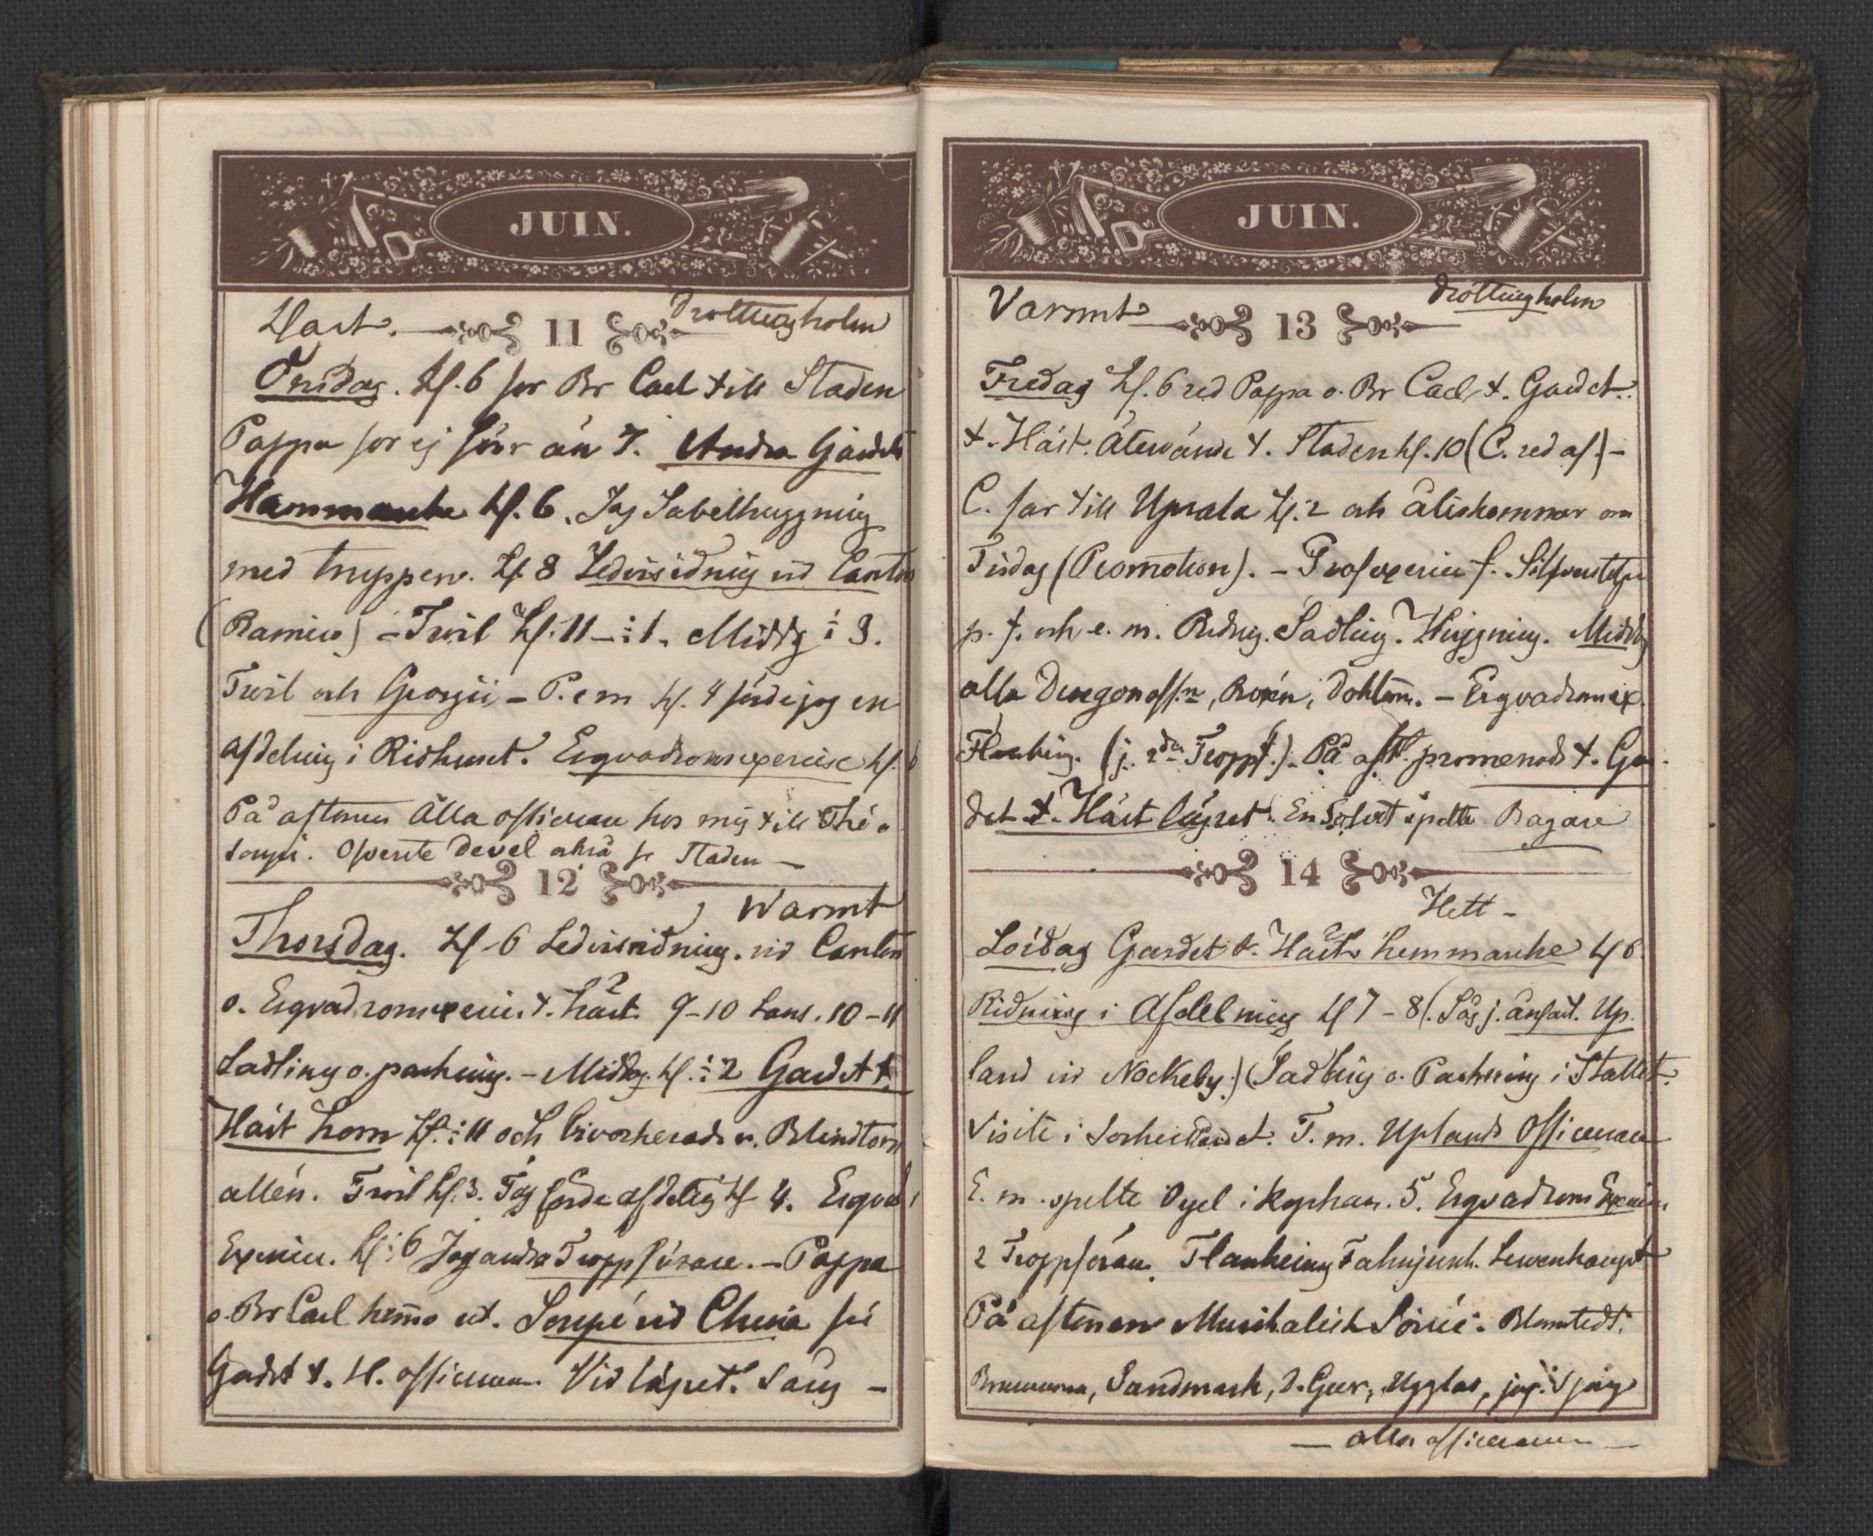 JUIN.
Drottningholm
11
Onsdag. Kl. 6 for Br Carl till Staden
Pappa for ej förr än 7. Andra Gardets
Hemmarche kl. 6. Jag Sabelhuggning
med truppen. Kl 8 Ledvisridning vid Canton
(Ramiro) – Hvil Kl. 11 – : 1. Middg : 3.
Hvil och Georgii – P. e m kl. 4 förde jag en
afdelning i Ridhuset. Esqvadronsexercise kl. 6
På aftonen Alla officerare hos mig till Thé o
Soupé. Öfverste Devel också fr Staden –
12
Warmt
Thorsdag. Kl 6 Ledvisridning. vid Canton
o. Esqvadronsexercis. t. häst. 9–10 Lans. 10–11
Sadling o. packning. – Middag. kl. : 2 Gardet t.
Häst kom Kl. : 11 och bivackerade v. Blindtorn
allén. Hvil kl. 3. Jag förde afdelng kl 4. Esqvad
Exercice. Kl : 6 Jag andra Troppförare. – Pappa
o. Br Carl hemo ut. Soupé vid China för
Gardet t. H. officerare. Vid lägret. Sång –
JUIN.
Varmt
Drottningholm
13
Fredag Kl. 6 red Pappa o. Br Carl t. Gardet.
t. Häst. Återvände t. Staden kl. 10 (C. red af) –
C. for till Upsala kl. 2 och återkommer om
Tisdag (Promotion). – f.
p. f. och e. m. Ridng. Sadling. Huggning. Middag
alla off.rn, – Esqvadronsex.
Flankering. (j. 2dra Troppf.). På aft. promenad t. Gar-
det t. Häst lägret. En spelte Bagare
14
Hett –
Lördag Gardet t. Häst hemmarche kl 6.
Ridning i Afdelning kl 7 – 8 (Såg j. Up-
land vid Nockeby.) (Sadling o. Packning i Stallet.
Visite i Sockerbruket. F. m. Uplands Officerare
E. m. spelte i 5. Esqvadrons Exercis,
2 Troppförare. Flankering Fahnjunk. Lewenhaupt
På aftonen Musikalisk Soirée. Blomstedt,
Sandmark, D. Geer, Ugglas, jag. Sjöng
— alla officerarne —